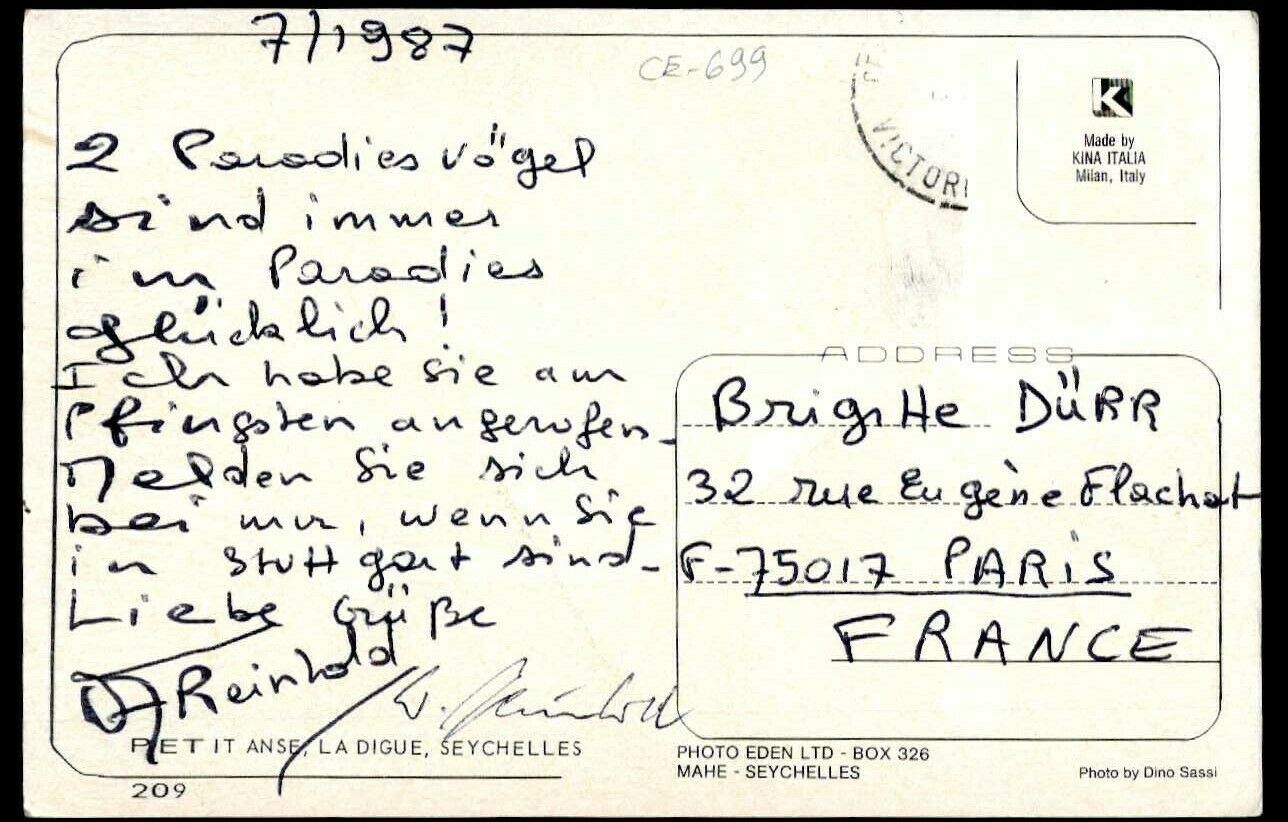 7/1987
CE-699
2 Paradiesvögel
sind immer
im Paradies
glücklich!
Ich habe Sie am
Pfingsten angerufen_
Melden Sie sich
bei mir, wenn Sie
in Stuttgart sind_
Liebe Grüße
Reinhold
PETIT ANSE, LA DIGUE, SEYCHELLES
209
VICTORI
K
Made by
KINA ITALIA
Milan, Italy
ADDRESS
Brigitte DÜRR
32 rue Eugène Flachat
F-75017 PARIS
FRANCE
PHOTO EDEN LTD - BOX 326
MAHE - SEYCHELLES
Photo by Dino Sassi